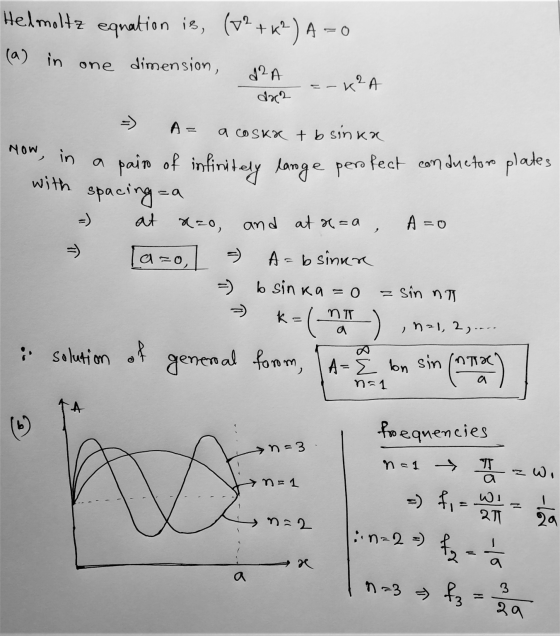 Helmoltz equation is, (∇² + k²) A = 0
(a) in one dimension, d²A/dx² = - k²A
⇒ A = a cos kx + b sin kx
Now, in a pair of infinitely large perfect conductor plates
with spacing = a
⇒ at x=0, and at x=a, A=0
⇒ a=0, ⇒ A = b sin kx
⇒ b sin ka = 0 = sin nπ
⇒ k = (nπ/a), n=1, 2, ....
∴ solution of general form, A = ∑_{n=1}^{∞} bn sin (nπx/a)
(b)
A
n=3
n=1
n=2
x
a
frequencies
n=1 → π/a = ω₁
⇒ f₁ = ω₁/2π = 1/2a
∴ n=2 ⇒ f₂ = 1/a
n=3 ⇒ f₃ = 3/2a